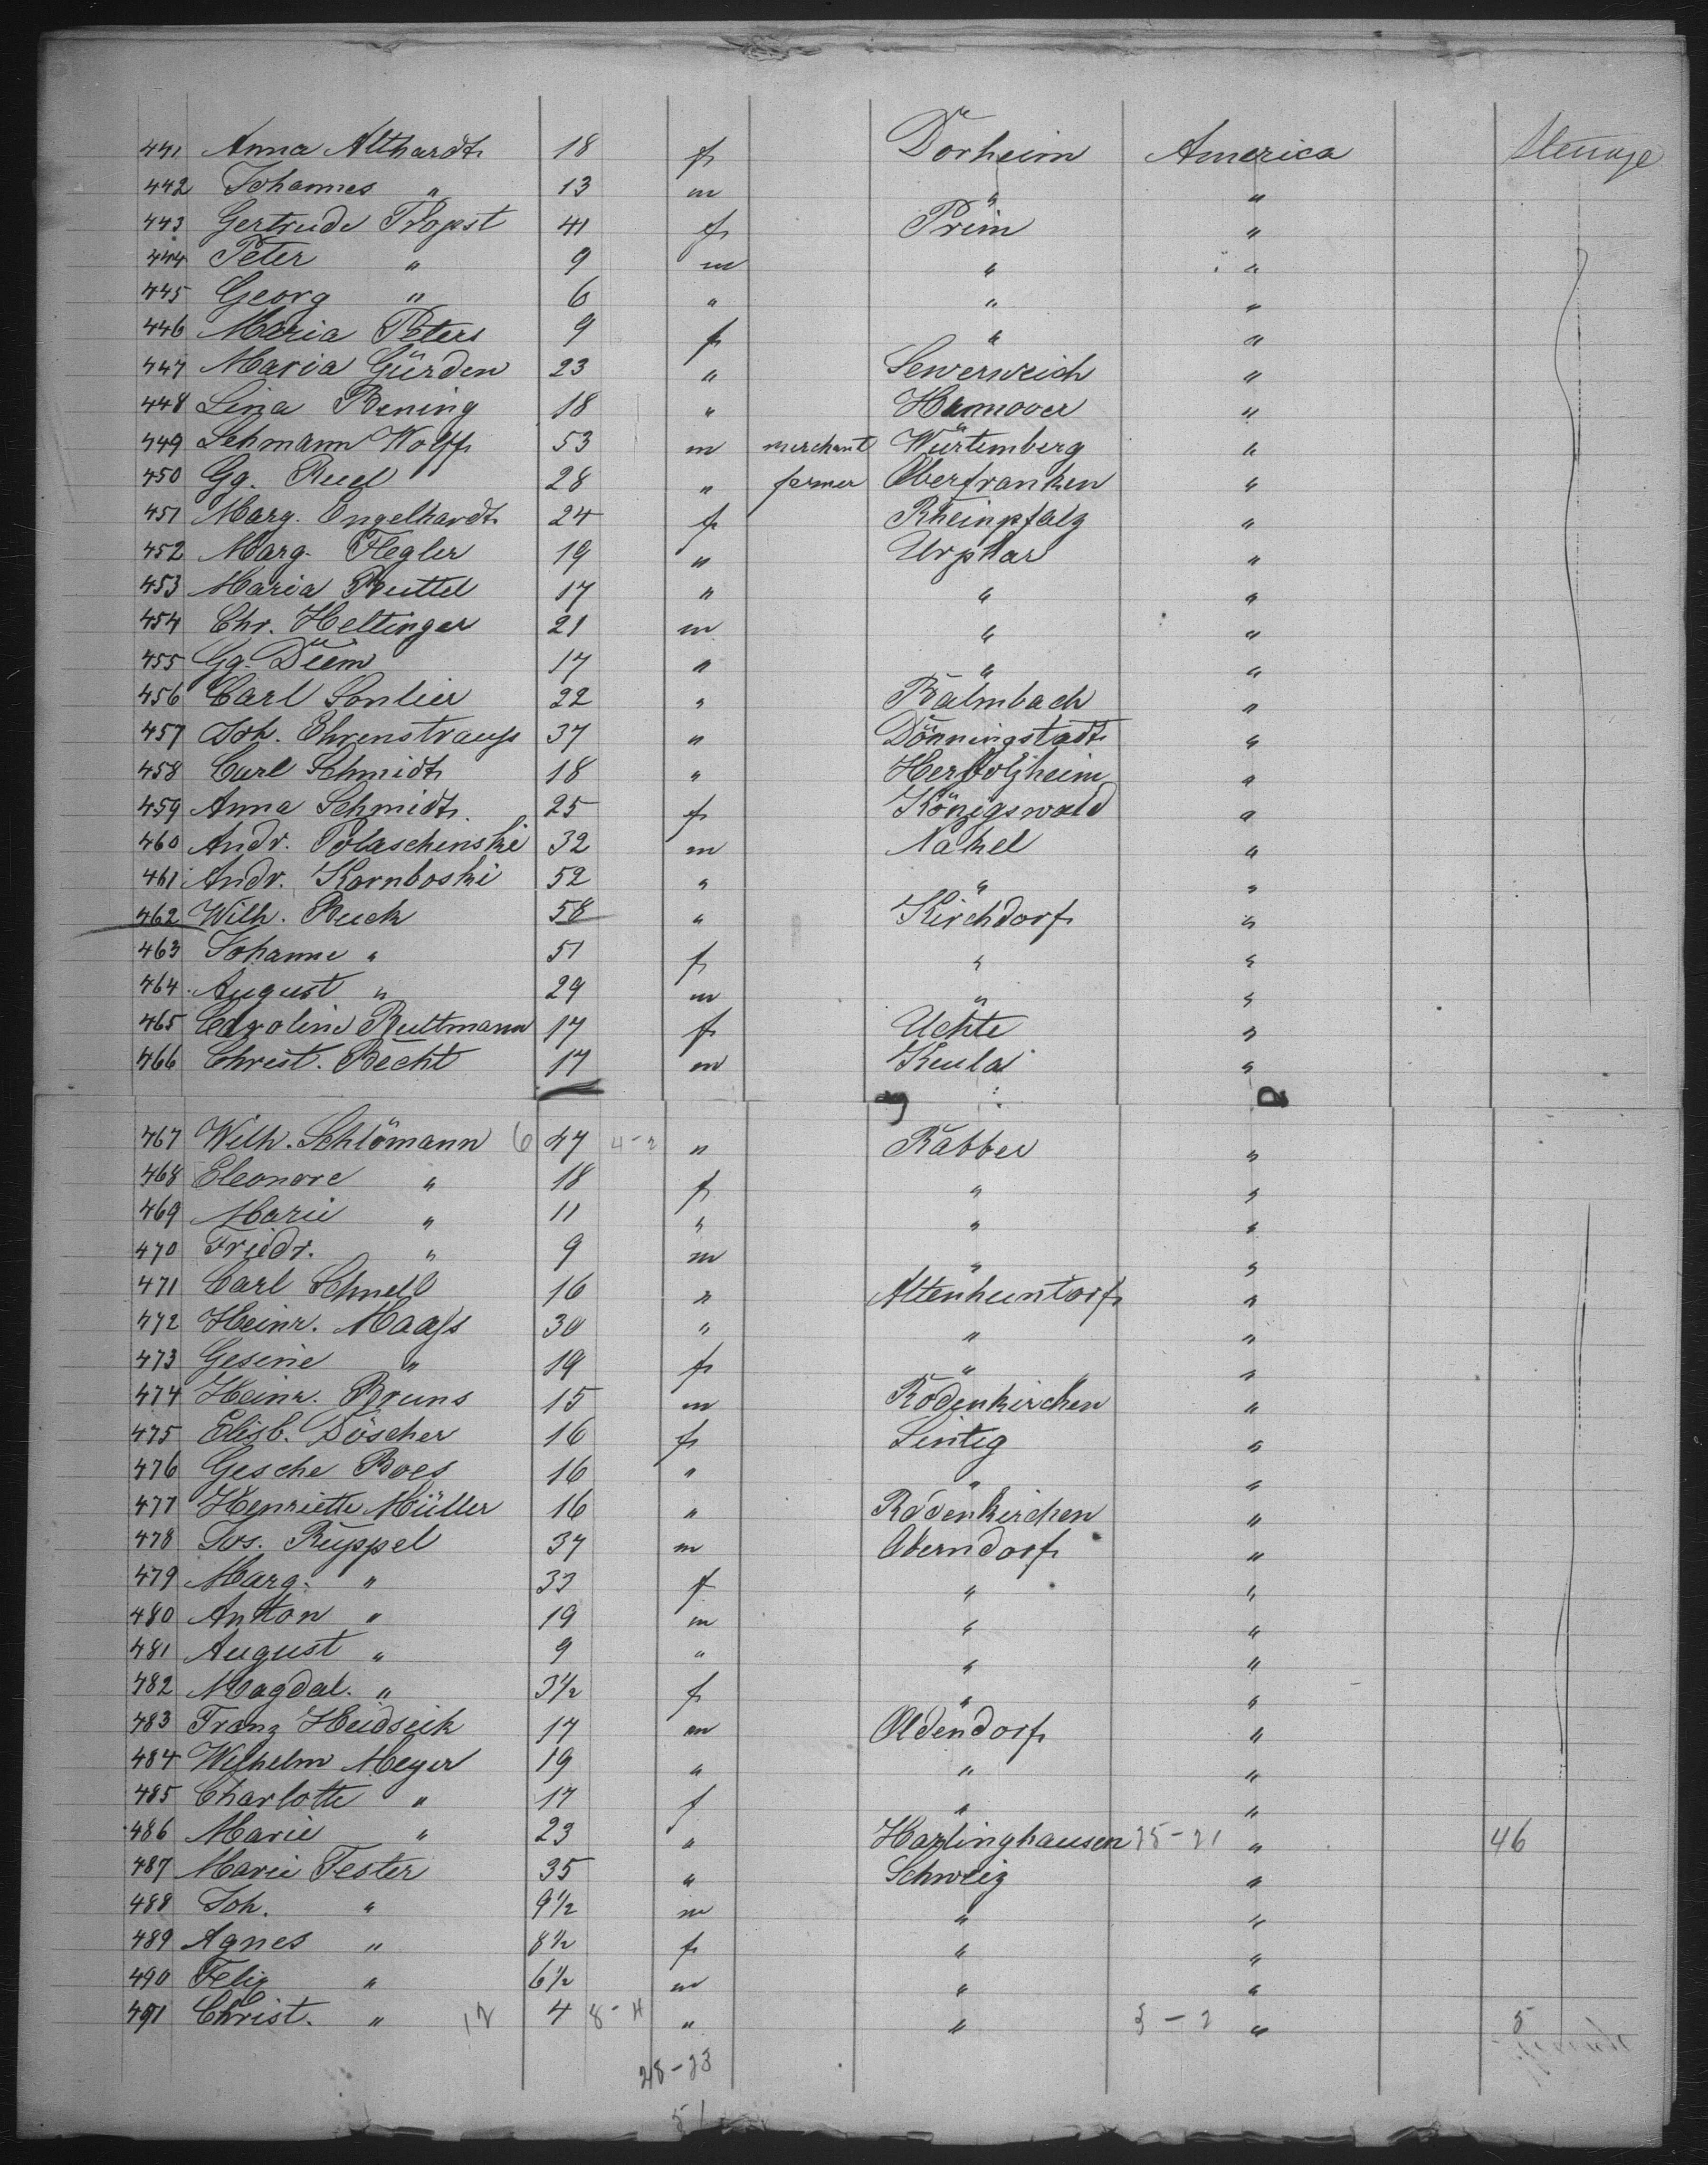 441 Anna Althardt 18 f Dorheim America Steerage
442 Johannes " 13 m " "
443 Gertrude Propst 41 f Prim "
444 Peter " 9 m " "
445 Georg " 6 " " "
446 Maria Peters 9 f " "
447 Maria Gürden 23 " Sewerweich "
448 Lina Bening 18 " Hannover "
449 Lehmann Wolff 53 m merchant Würtemberg "
450 Gg. Ruel 28 " farmer Oberfranken "
451 Marg. Engelhardt 24 f Rheinpfalz "
452 Marg. Flegler 19 " Urphar "
453 Maria Buttel 17 " " "
454 Chr. Heltinger 21 m " "
455 Gg. Diem 17 " " "
456 Carl Sonlier 22 " Balmbach "
457 Joh. Ehrenstrauss 37 " Dönningstadt "
458 Carl Schmidt 18 " Herbolzheim "
459 Anna Schmidt 25 f Königswald "
460 Andr. Polaschenski 32 m Nakel "
461 Andr. Kornboski 52 " " "
462 Wilh. Buck 58 " Kirchdorf "
463 Johanne " 51 f " "
464 August " 29 m " "
465 Caroline Bultmann 17 f Uchte "
466 Christ. Becht 17 m Keula "
467 Wilh. Schlömann 6 47 4-2 " Rabber "
468 Eleonore " 18 f " "
469 Marie " 11 " " "
470 Friedr. " 9 m " "
471 Carl Schnell 16 " Altenhuntorf "
472 Heinr. Maass 30 " " "
473 Gesine " 19 f " "
474 Heinr. Bruns 15 m Rodenkirchen "
475 Elisb. Döscher 16 f Lintig "
476 Gesche Boes 16 " " "
477 Henriette Müller 16 " Rodenkirchen "
478 Jos. Ruppel 37 m Oberndorf "
479 Marg. " 33 f " "
480 Anton " 19 m " "
481 August " 9 " " "
482 Magdal. " 3½ f " "
483 Franz Heidseik 17 m Oldendorf "
484 Wilhelm Meyer 19 " " "
485 Charlotte " 17 f " "
486 Marie " 23 " Harlinghausen 25-21 " 46
487 Marie Tester 35 " Schweiz "
488 Joh. " 9½ m " "
489 Agnes " 8½ f " "
490 Felix " 6½ m " "
491 Christ. " 12 4 8-4 " " 3-2 " 5
28-23
51